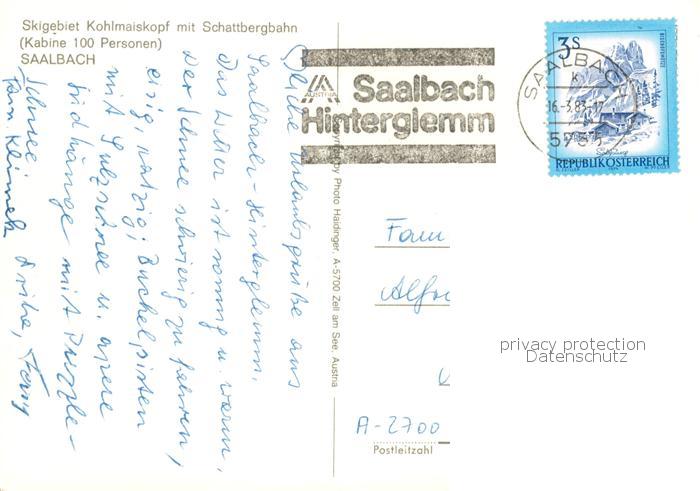 Skigebiet Kohlmaiskopf mit Schattbergbahn
(Kabine 100 Personen)
SAALBACH
Liebe Urlaubsgrüße aus
Saalbach-Hinterglemm.
Das Wetter ist sonnig u. warm,
der Schnee schwierig zu fahren,
eisig, Buckelpisten
mit Sulzschnee u. apere
Südhänge mit
Schnee
Fam. Klimek
Copyright by Photo Haidinger, A-5700 Zell am See, Austria
AUSTRIA
Saalbach
Hinterglemm
SAALBACH
16.-3.83-17
3S
REPUBLIK ÖSTERREICH
Fam
Alfr
A-2700
Postleitzahl
privacy protection
Datenschutz